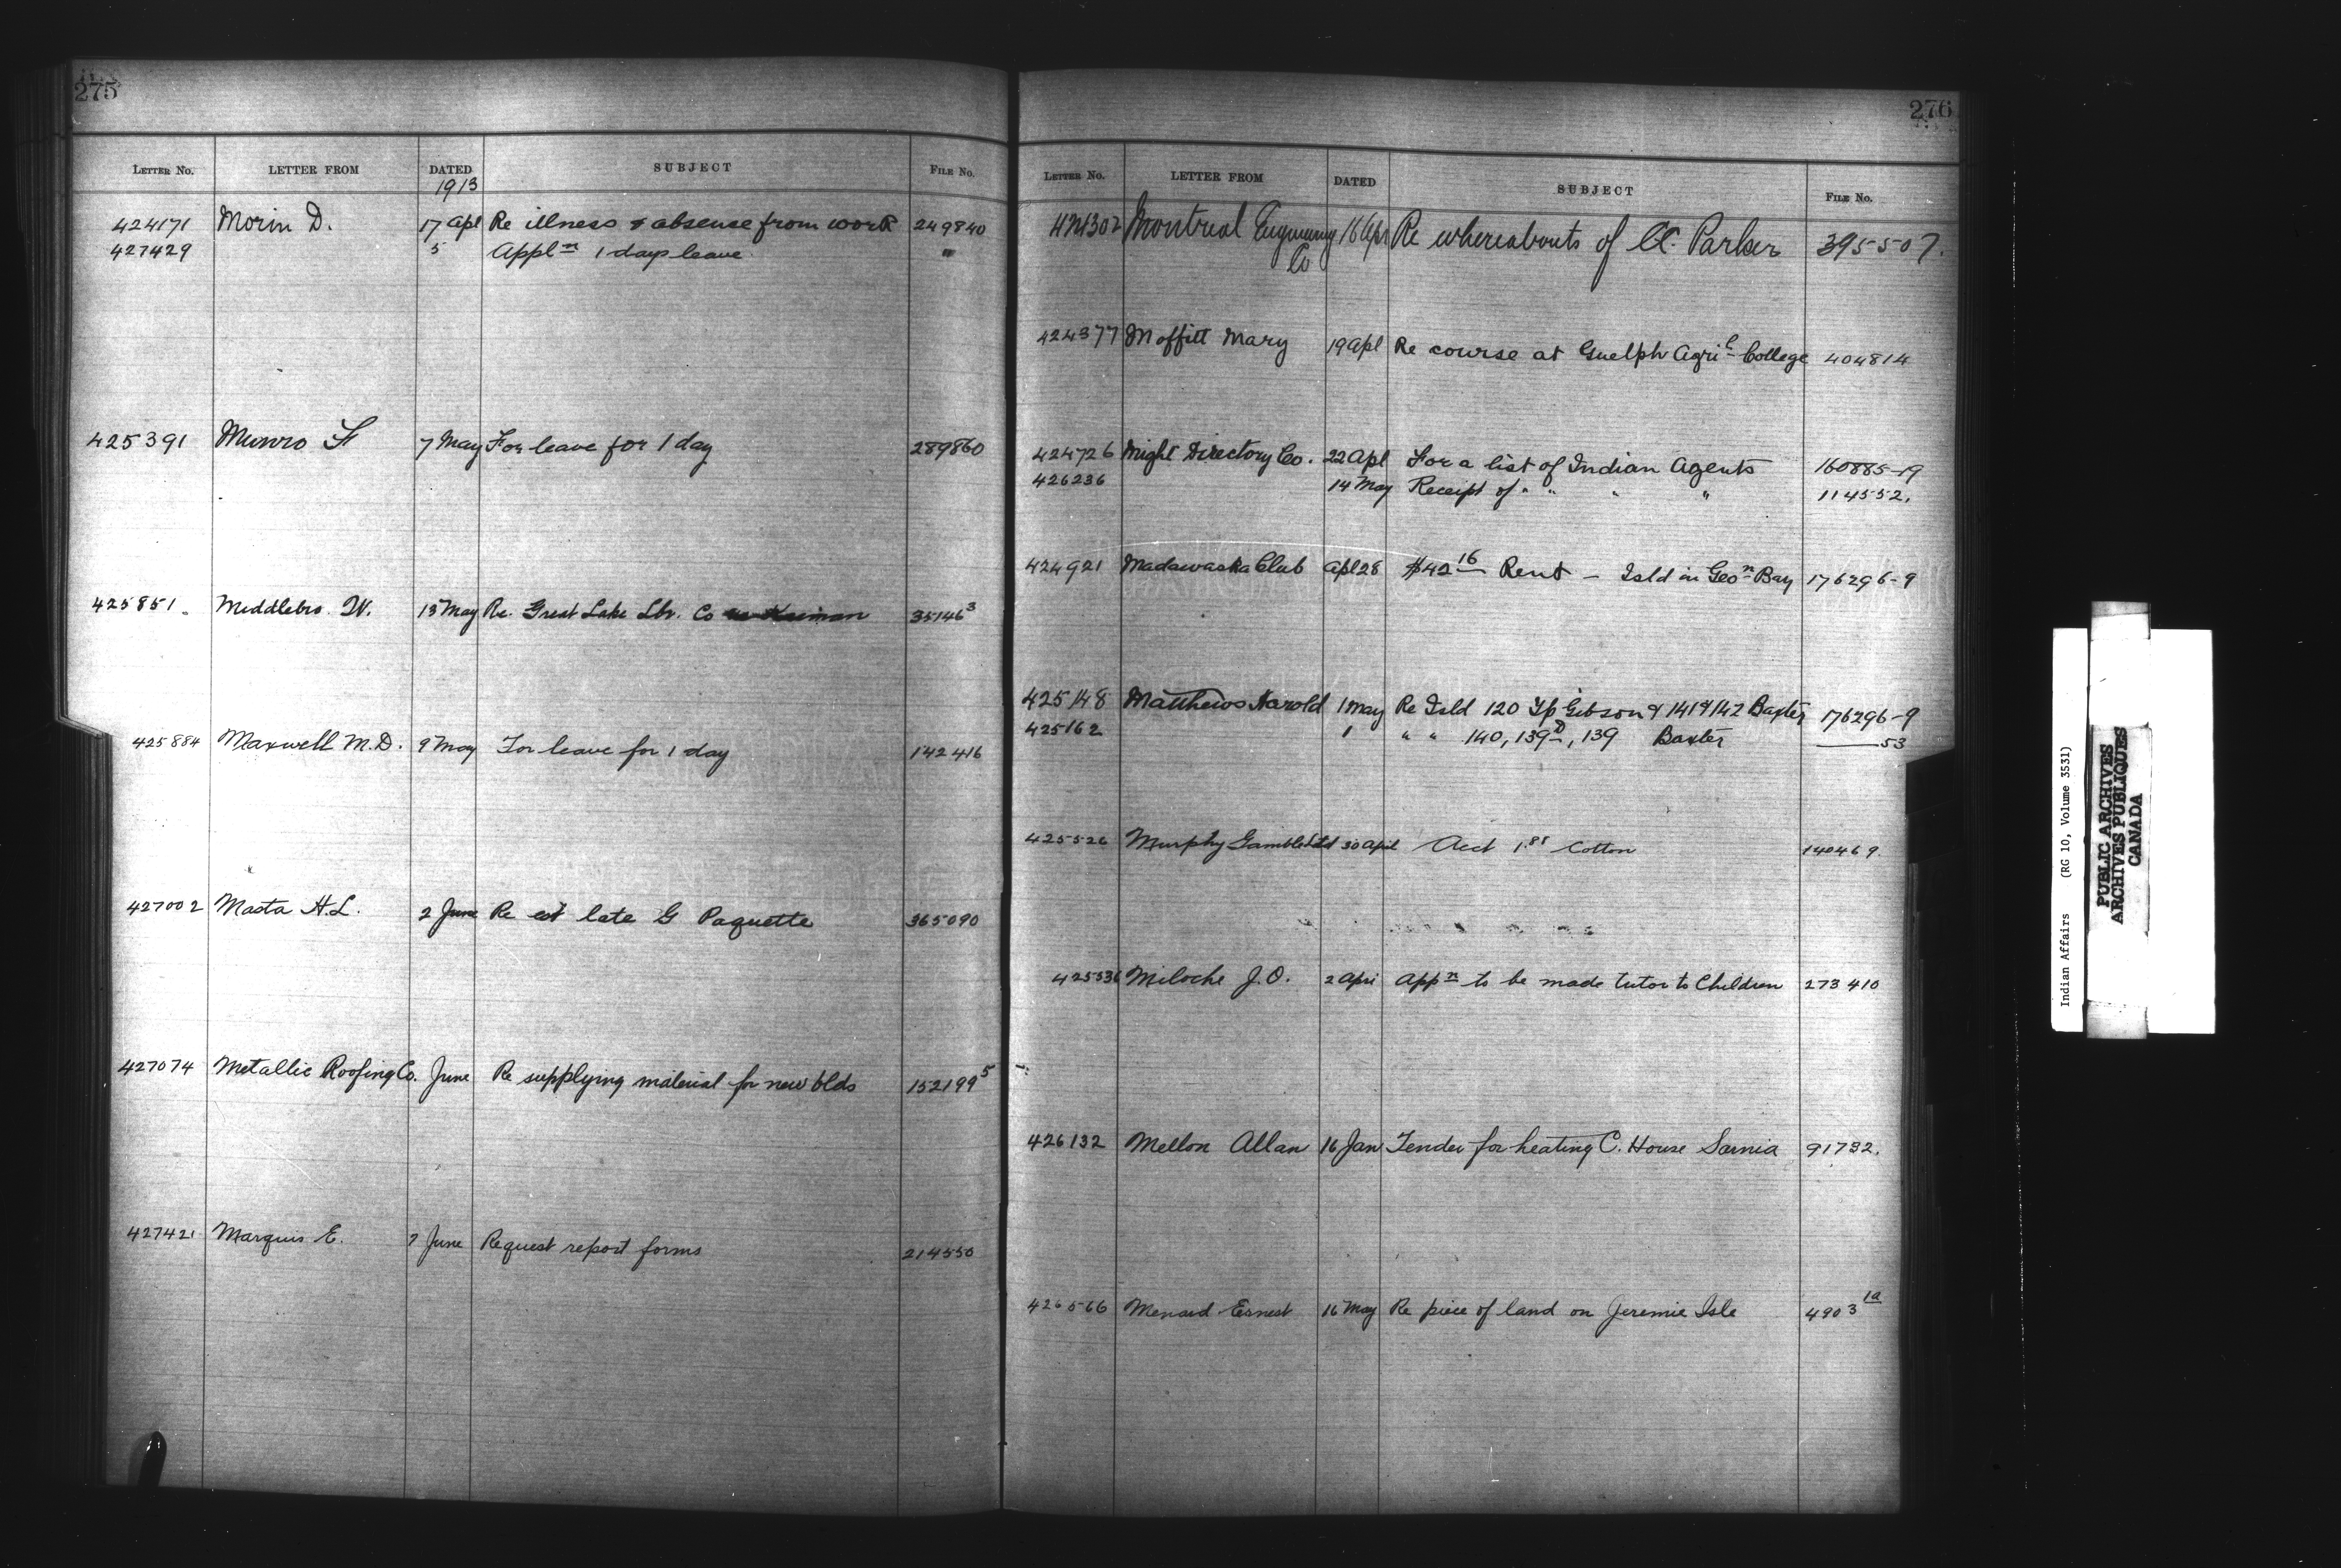 275
LETTER NO. LETTER FROM DATED SUBJECT FILE No.
1913
424171 Morin D. 17 Apl Re illness & absence from work 249840
427429 5 Appln 1 days leave "
425391 Munro 7 May For leave for 1 day 289860
425851. Middlebro. W. 13 May Re. Great Lake Lbr. Co 35146 3
425884 Maxwell M.D. 9 May For leave for 1 day 142416
427002 Masta H.L. 2 June Re est late G Paquette 365090
427074 Metallic Roofing Co. June Re supplying material for new blds 152199 5
427421 Marquis E. 7 June Request report forms 214550
276
LETTER No. LETTER FROM DATED SUBJECT FILE No.
424302 Montreal 16 Apr Re whereabouts of Parker 395507.
Co
424377 Moffitt Mary 19 Apl Re course at Guelph Agril College 404814
424726 Might Directory Co. 22 Apl For a list of Indian Agents 160885-19
426236 14 May Receipt of " " " " 114552.
424921 Madawaska Club Apl 28 $42 16 Rent - Isld in Geon Bay 176296-9
425148 Matthews Harold 1 May Re Isld 120 Tp Gibson & 141 & 142 Baxter 176296-9
425162 1 " " 140, 139D, 139 Baxter ——53
425526 Murphy Gamble Ltd 30 April Acct 1.85 Cotton 140469.
425536 Miloche J.O. 2 Apri Appn to be made tutor to Children 273410
426132 Mellon Allan 16 Jan Tender for heating C. House Sarnia 91732.
426566 Menard Ernest 16 May Re piece of land on Jeremie Isle 4903 1a
Indian Affairs (RG 10, Volume 3531)
PUBLIC ARCHIVES
ARCHIVES PUBLIQUES
CANADA